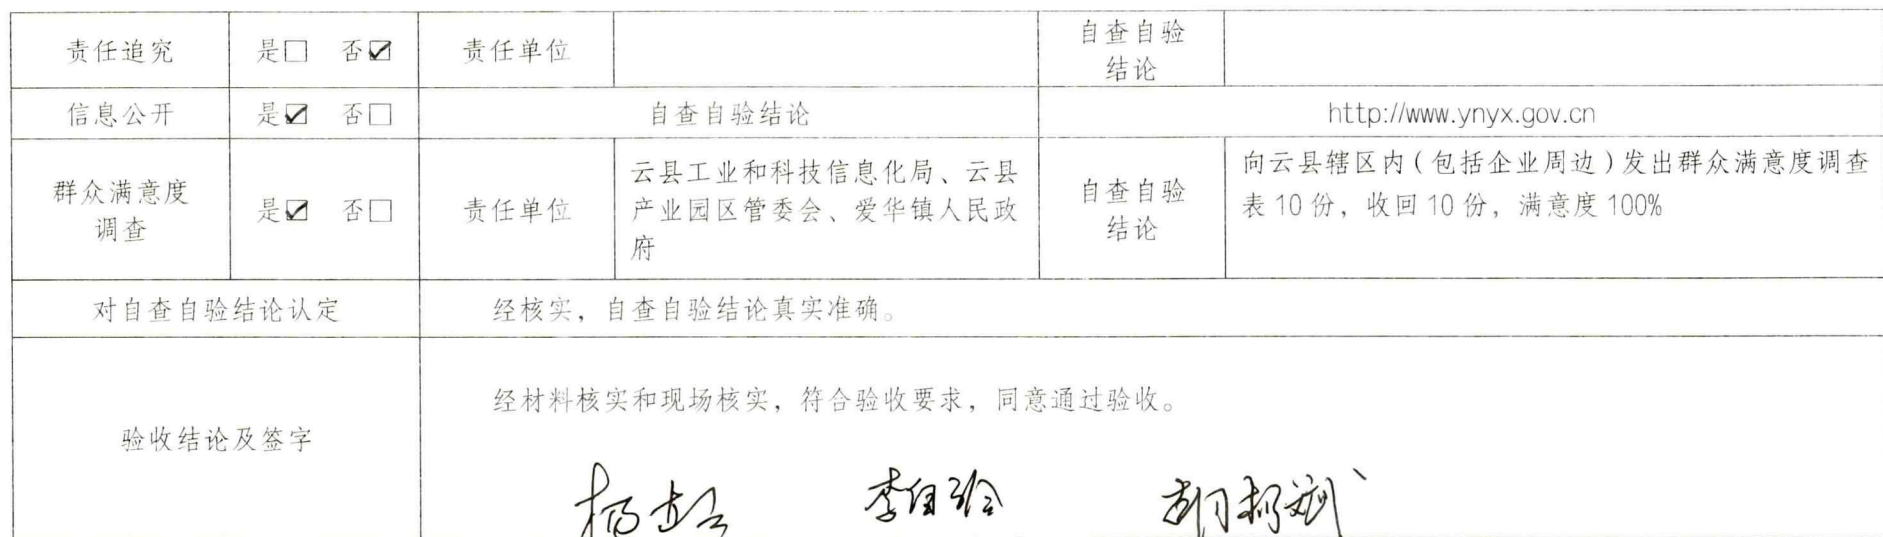 责任追究 是□ 否☑ 责任单位 自查自验
结论
信息公开 是☑ 否□ 自查自验结论 http://www.ynyx.gov.cn
群众满意度
调查
是☑ 否□
责任单位
云县工业和科技信息化局、云县
产业园区管委会、爱华镇人民政
府
自查自验
结论
向云县辖区内(包括企业周边)发出群众满意度调查
表10份，收回10份，满意度100%
对自查自验结论认定 经核实，自查自验结论真实准确。
验收结论及签字
经材料核实和现场核实，符合验收要求，同意通过验收。